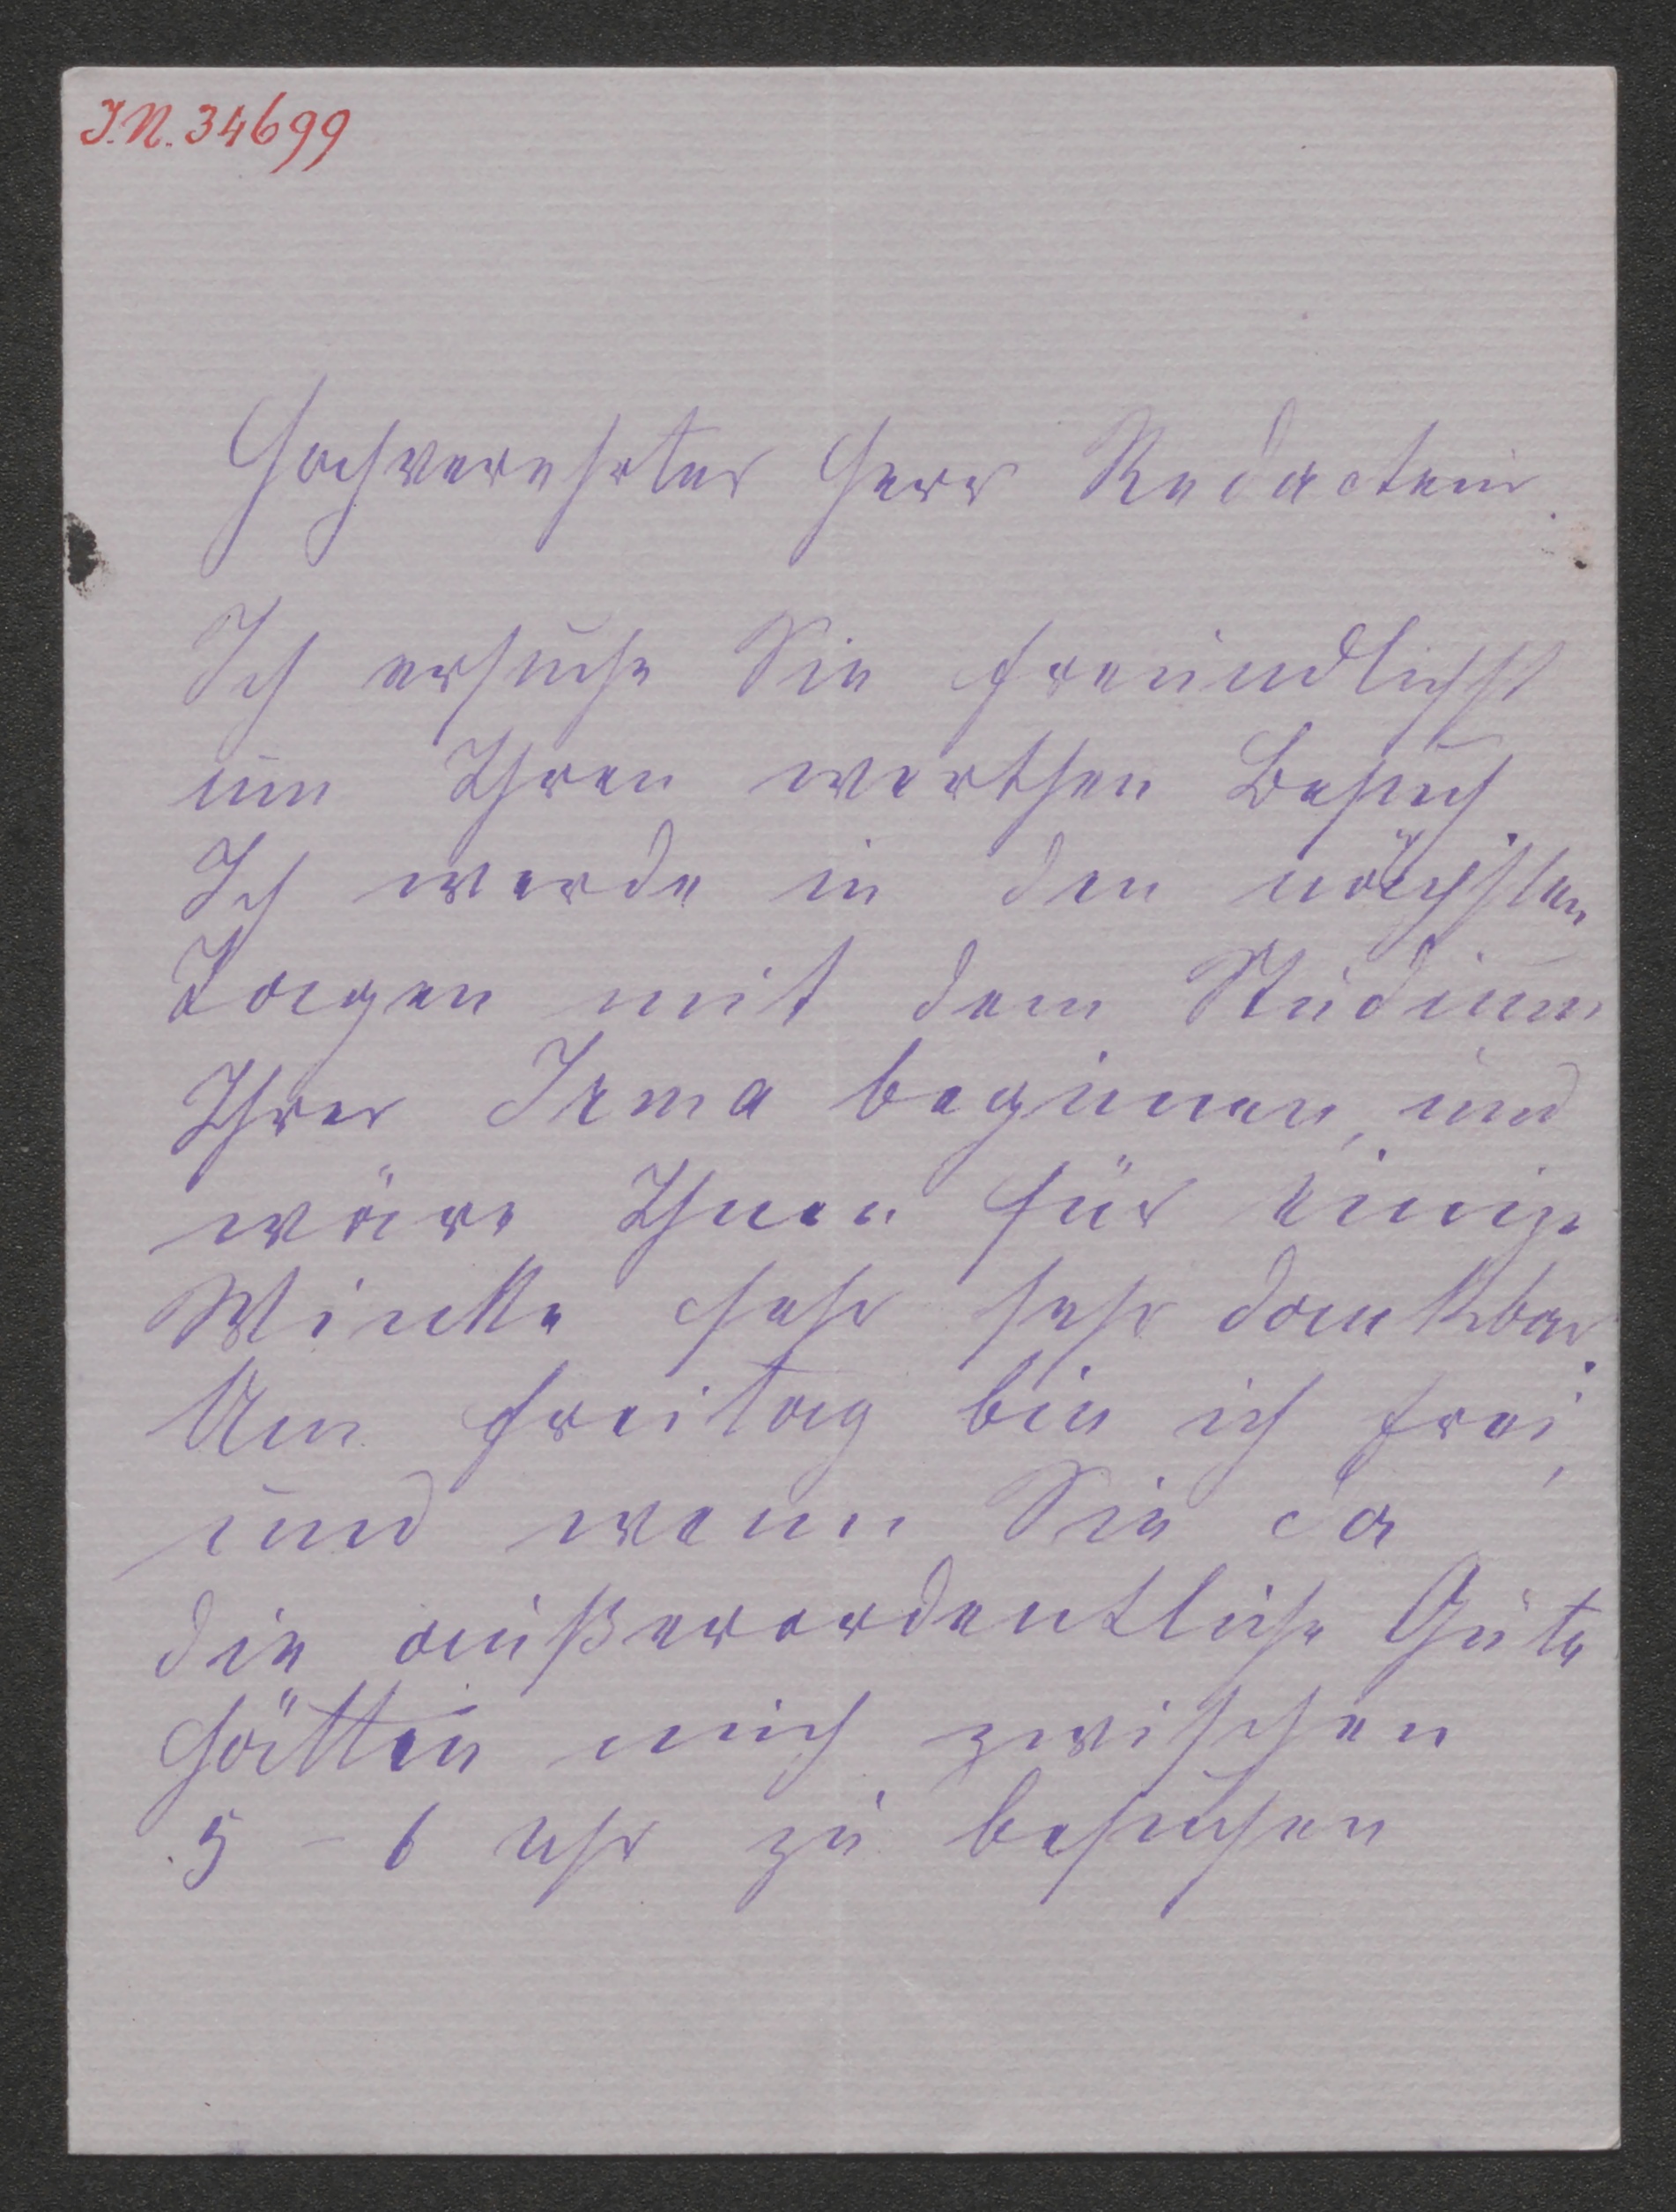 I.N. 34699
Hochverehrter Herr Redacteur.
Ich ersuche Sie freundlichst
um Ihren werthen Besuch.
Ich werde in den nächsten
Tagen mit dem Studium
Ihrer Irma beginnen, und
wäre Ihnen für einige
Winke sehr sehr dankbar.
Am Freitag bin ich frei,
und wenn Sie da
die außerordentliche Güte
hätten mich zwischen
5 – 6 Uhr zu besuchen